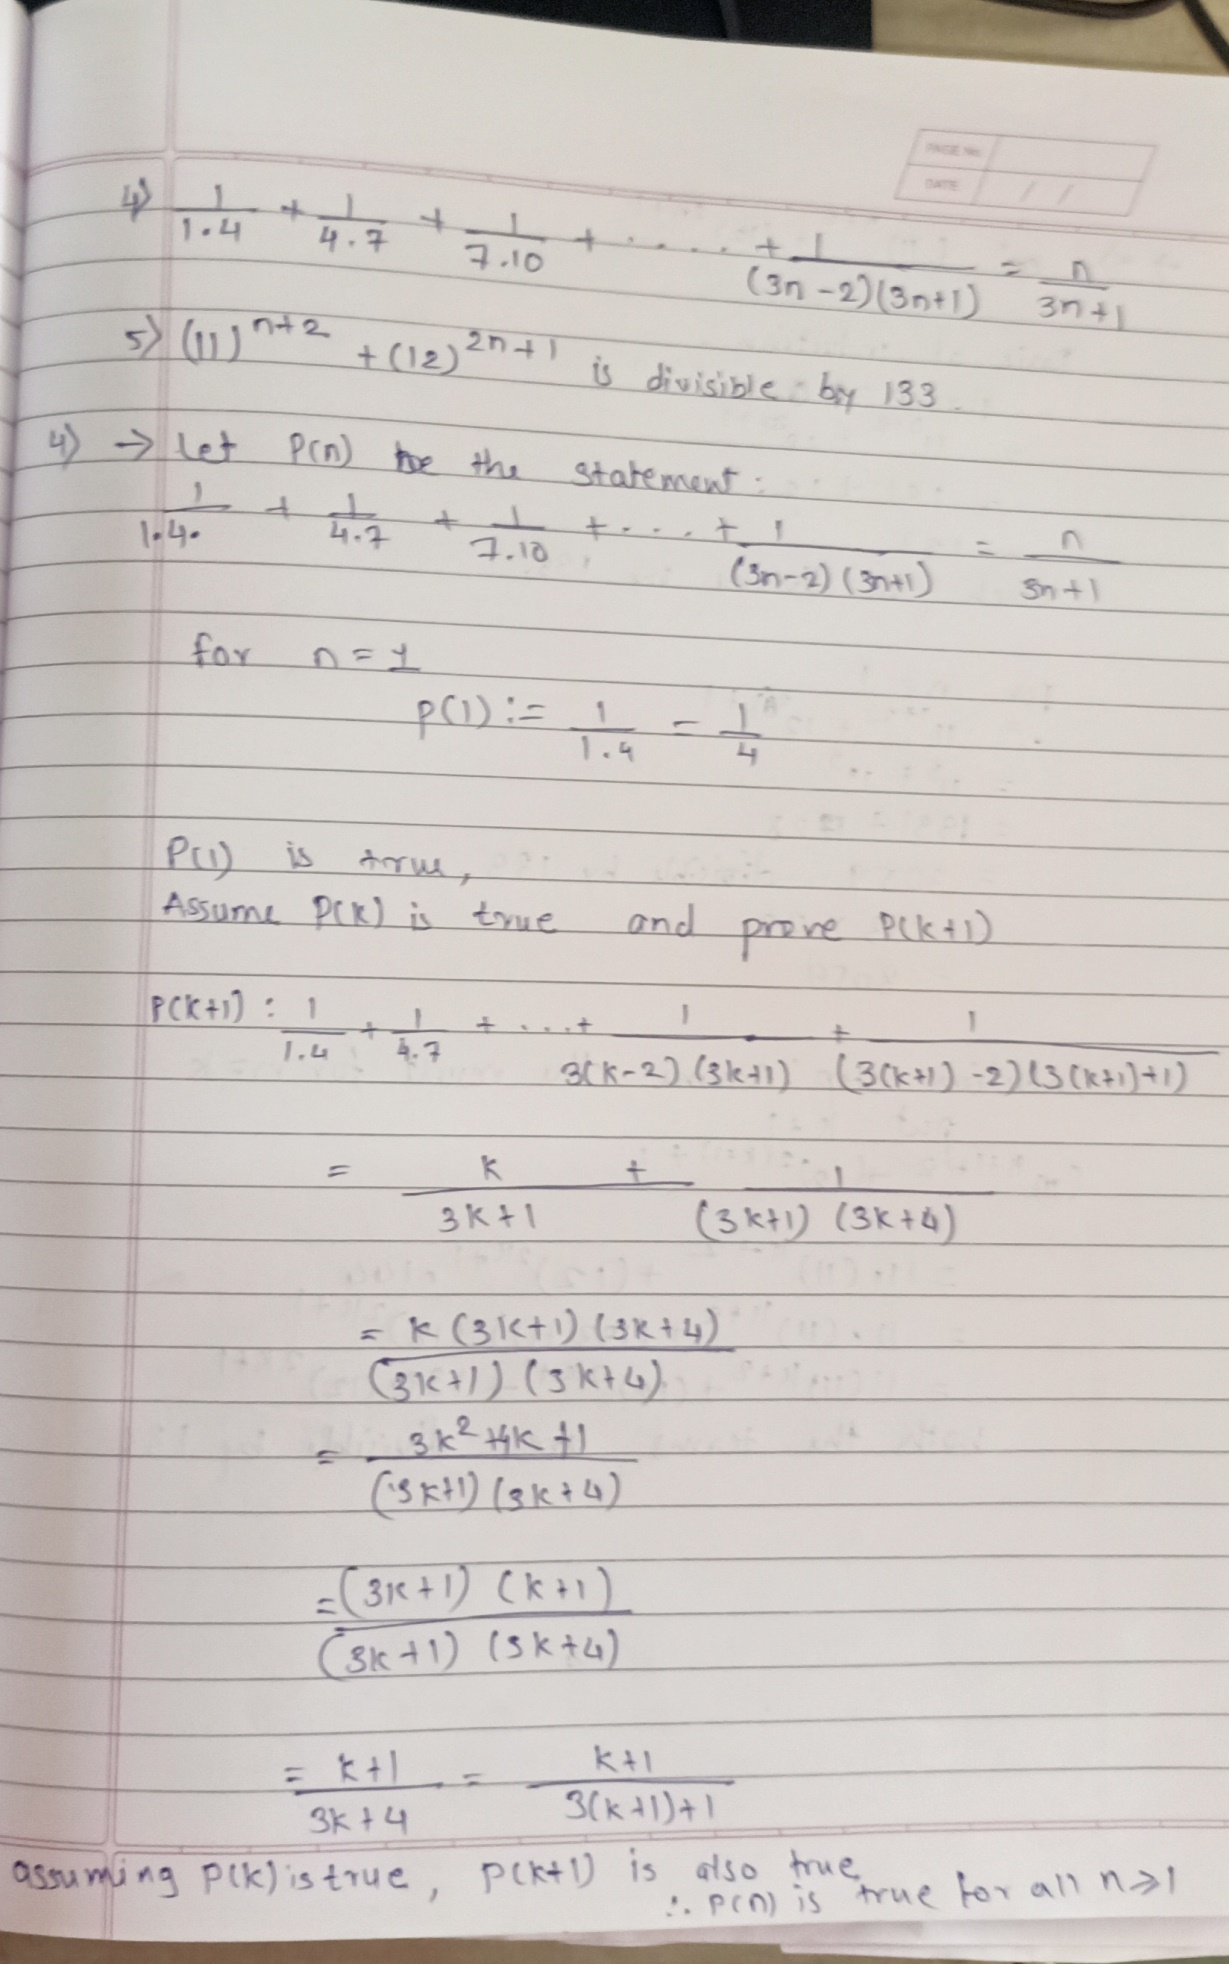 PAGE No.
DATE / /
4) 1/1.4 + 1/4.7 + 1/7.10 + ..... + 1/(3n-2)(3n+1) = n/3n+1
5) (11)^n+2 + (12)^2n+1 is divisible by 133.
4) → Let P(n) be the statement:
1/1.4. + 1/4.7 + 1/7.10 + .... + 1/(3n-2)(3n+1) = n/3n+1
for n=1
P(1) := 1/1.4 = 1/4
P(1) is true,
Assume P(k) is true and prove P(k+1)
P(k+1) : 1/1.4 + 1/4.7 + ...+ 1/3(k-2)(3k+1) + 1/(3(k+1)-2)(3(k+1)+1)
= k/3k+1 + 1/(3k+1)(3k+4)
= k(3k+1)(3k+4)/(3k+1)(3k+4)
= 3k²+4k+1/(3k+1)(3k+4)
= (3k+1)(k+1)/(3k+1)(3k+4)
= k+1/3k+4 = k+1/3(k+1)+1
assuming P(k) is true, P(k+1) is also true
∴ P(n) is true for all n≥1